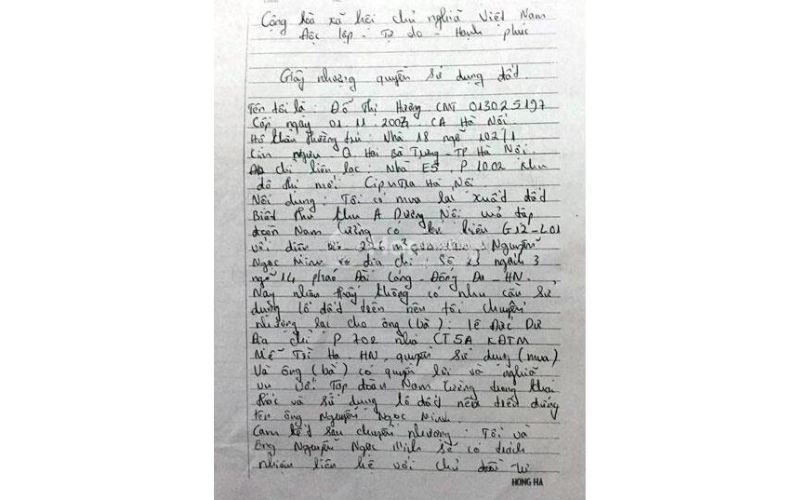 Cộng hòa xã hội chủ nghĩa Việt Nam
Độc lập - Tự do - Hạnh phúc
Giấy nhượng quyền sử dụng đất
Tên tôi là: Đỗ Thị Hương CMT 013025197
Cấp ngày 01.11.2007. CA Hà Nội.
Hộ khẩu thường trú: Nhà 18 ngõ 102/1
Q Hai Bà Trưng - TP Hà Nội.
Địa chỉ liên lạc: Nhà E5, P 1002 Khu
đô thị mới Ciputra Hà Nội
Nội dung: Tôi có mua lại xuất đất
Biệt thự khu A Dương Nội của tập
đoàn Nam Cường có ký hiệu G12-L01
với diện tích m² Nguyễn
Ngọc Minh có địa chỉ số 23 ngách 3
ngõ 14 phố - Đống Đa - HN.
Nay nhận thấy không có nhu cầu sử
dụng lô đất trên nên tôi chuyển
nhượng lại cho ông (bà): Lê Đức Dư
Địa chỉ P 702 nhà CT5A KĐTM
Mễ Trì Hạ HN quyền sử dụng (mua)
Và ông (bà) có quyền lợi và nghĩa
vụ với Tập đoàn Nam Cường trong khai
thác và sử dụng lô đất nêu trên đứng
tên ông Nguyễn Ngọc Minh.
Cam kết sau chuyển nhượng: Tôi và
ông Nguyễn Ngọc Minh sẽ có trách
nhiệm liên hệ với chủ đầu tư
HONG HA